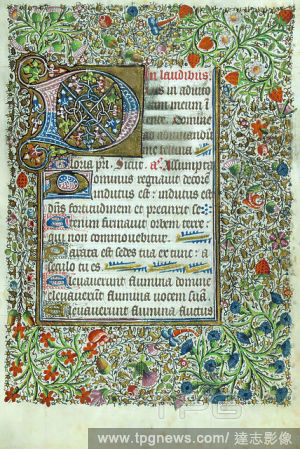 In laudibus
Deus in adiuto
rium meum i
Domine
ad adiuuandum
me festina
Gloria pri. Sicut. a. Assumpta
Dominus regnauit decore
indutus est: indutus est
dns fortitudinem et precinxit se
Etenim firmauit orbem terre:
qui non commouebitur.
Parata est sedes tua ex tunc: a
seculo tu es
Eleuauerunt flumina domine
eleuauerunt flumina uocem sua.
Eleuauerunt flumina fluctus
TPG
www.tpgnews.com/ 達志影像